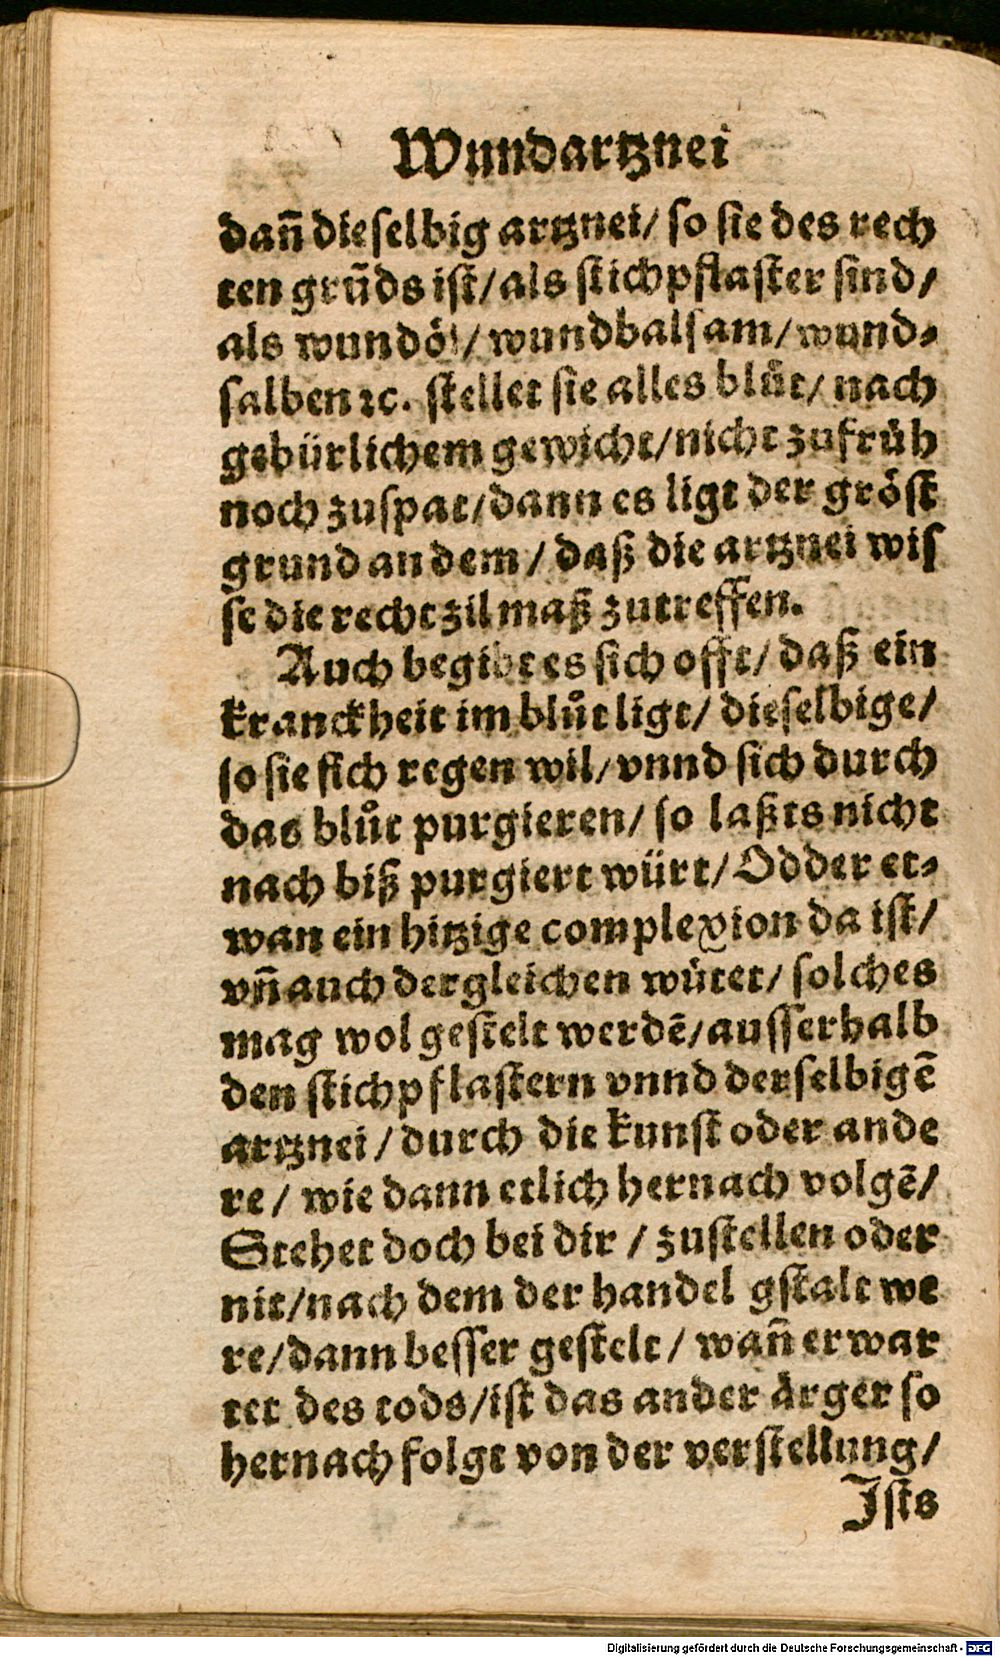 Wundartznei
dañ dieselbig artznei/ so sie des rech
ten grũds ist/ als stichpflaster sind/
als wundöl/ wundbalsam/ wund⸗
salben ꝛc. stellet sie alles blůt/ nach
gebürlichem gewicht/ nicht zufrüh
noch zuspat/ dann es ligt der gröst
grund an dem/ daß die artznei wis
se die recht zil maß zutreffen.
Auch begibt es sich offt/ daß ein
kranckheit im blůt ligt/ dieselbige/
so sie sich regen wil/ vnnd sich durch
das blůt purgieren/ so laßts nicht
nach biß purgiert würt/ Odder et⸗
wan ein hitzige complexion da ist/
vñ auch dergleichen wütet/ solches
mag wol gestelt werdẽ/ ausserhalb
den stichpflastern vnnd derselbigẽ
artznei/ durch die kunst oder ande
re/ wie dann etlich hernach volgẽ/
Stehet doch bei dir/ zustellen oder
nit/ nach dem der handel gstalt we
re/ dann besser gestelt/ wañ er war
tet des tods/ ist das ander ärger so
hernach folgt von der verstellung/
Ists
Digitalisierung gefördert durch die Deutsche Forschungsgemeinschaft - DFG